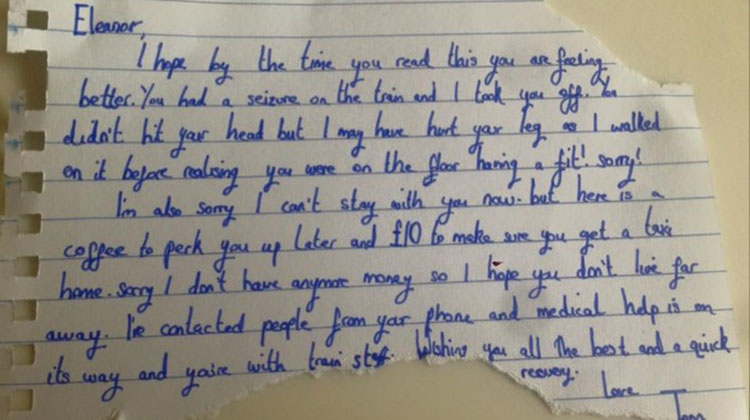 Eleanor,
I hope by the time you read this you are feeling
better. You had a seizure on the train and I took you off. You
didn't hit your head but I may have hurt your leg as I walked
on it before realising you were on the floor having a fit! sorry!
I'm also sorry I can't stay with you now. but here is a
coffee to perk you up later and £10 to make sure you get a taxi
home. sorry I don't have anymore money so I hope you don't live far
away. I've contacted people from your phone and medical help is on
its way and you're with train staff. Wishing you all the best and a quick
recovery.
Love